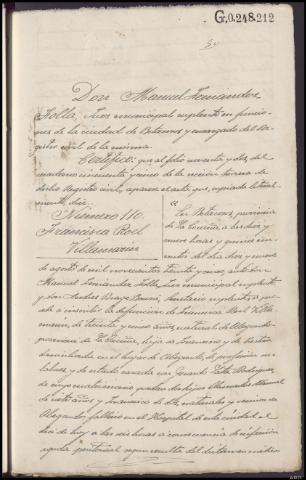 G.0.248.212
Don Manuel Fernández
Folla, Juez municipal suplente en funcio-
nes de la ciudad de Betanzos y encargado del Re-
gistro civil de la misma
Certifico: que al folio noventa y dos, del
cuaderno cincuenta y cinco de la sección tercera de
dicho Registro civil, aparece el acta que, copiada literal-
mente, dice:
Número 110.
Francisca Roel
Villamarin
En Betanzos, provincia
de la Coruña, a las diez y
nueve horas y quince mi-
nutos del día diez y nueve
de agosto de mil novecientos treinta y cinco, ante Don
Manuel Fernández Folla, Juez municipal suplente y
Don Andrés Secretario suplente, se pro-
cede a inscribir la defunción de Francisca Roel Villa-
marin, de treinta y cinco años, natural de Abegondo
provincia de La Coruña, hija de Francisco y de
domiciliada en el lugar de Abegondo, de profesión su
labores, y de estado casada con Gerardo Rodríguez,
de cuyo matrimonio quedan dos hijos Manuel
de siete años y Francisco de naturales y vecinos de
Abegondo; falleció en el Hospital de esta ciudad el
día de hoy a las seis horas a consecuencia de infección
aguda puerperal según resulta del